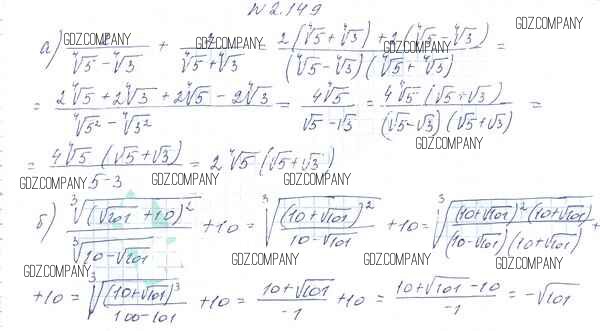 N 2.149
GDZ.COMPANY
а) 2/(⁴√5 - ⁴√3) + 2/(⁴√5 + ⁴√3) = (2(⁴√5 + ⁴√3) + 2(⁴√5 - ⁴√3))/((⁴√5 - ⁴√3)(⁴√5 + ⁴√3)) =
GDZ.COMPANY GDZ.COMPANY GDZ.COMPANY
= (2⁴√5 + 2⁴√3 + 2⁴√5 - 2⁴√3)/(⁴√5² - ⁴√3²) = 4⁴√5/(√5 - √3) = 4⁴√5(√5 + √3)/((√5 - √3)(√5 + √3)) =
GDZ.COMPANY
= 4⁴√5(√5 + √3)/(5 - 3) = 2⁴√5(√5 + √3)
GDZ.COMPANY GDZ.COMPANY GDZ.COMPANY GDZ.COMPANY
б) ³√((√101 + 10)²)/³√(10 - √101) + 10 = ³√((10 + √101)²/(10 - √101)) + 10 = ³√((10 + √101)²(10 + √101)/((10 - √101)(10 + √101))) +
GDZ.COMPANY GDZ.COMPANY GDZ.COMPANY GDZ.COMPANY
+ 10 = ³√((10 + √101)³/(100 - 101)) + 10 = (10 + √101)/-1 + 10 = (10 + √101 - 10)/-1 = -√101